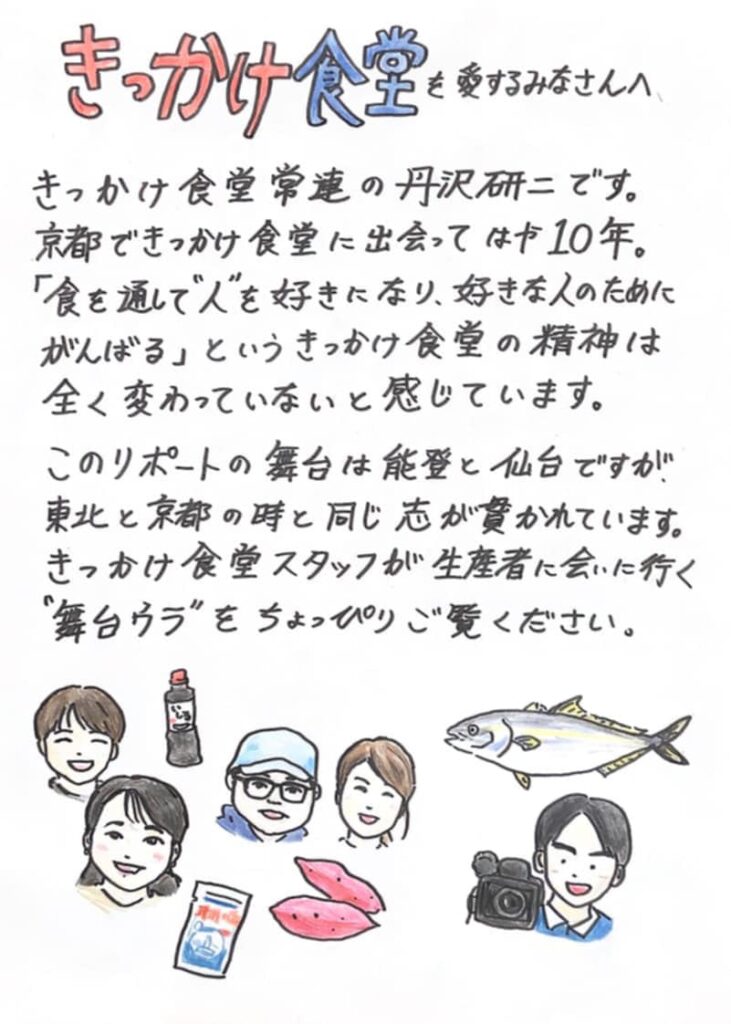 きっかけ食堂を愛するみなさんへ
きっかけ食堂常連の丹沢研二です。
京都できっかけ食堂に出会ってはや10年。
「食を通して"人"を好きになり、好きな人のために
がんばる」というきっかけ食堂の精神は
全く変わっていないと感じています。
このリポートの舞台は能登と仙台ですが、
東北と京都の時と同じ志が貫かれています。
きっかけ食堂スタッフが生産者に会いに行く
"舞台ウラ"をちょっぴりご覧ください。
いしる